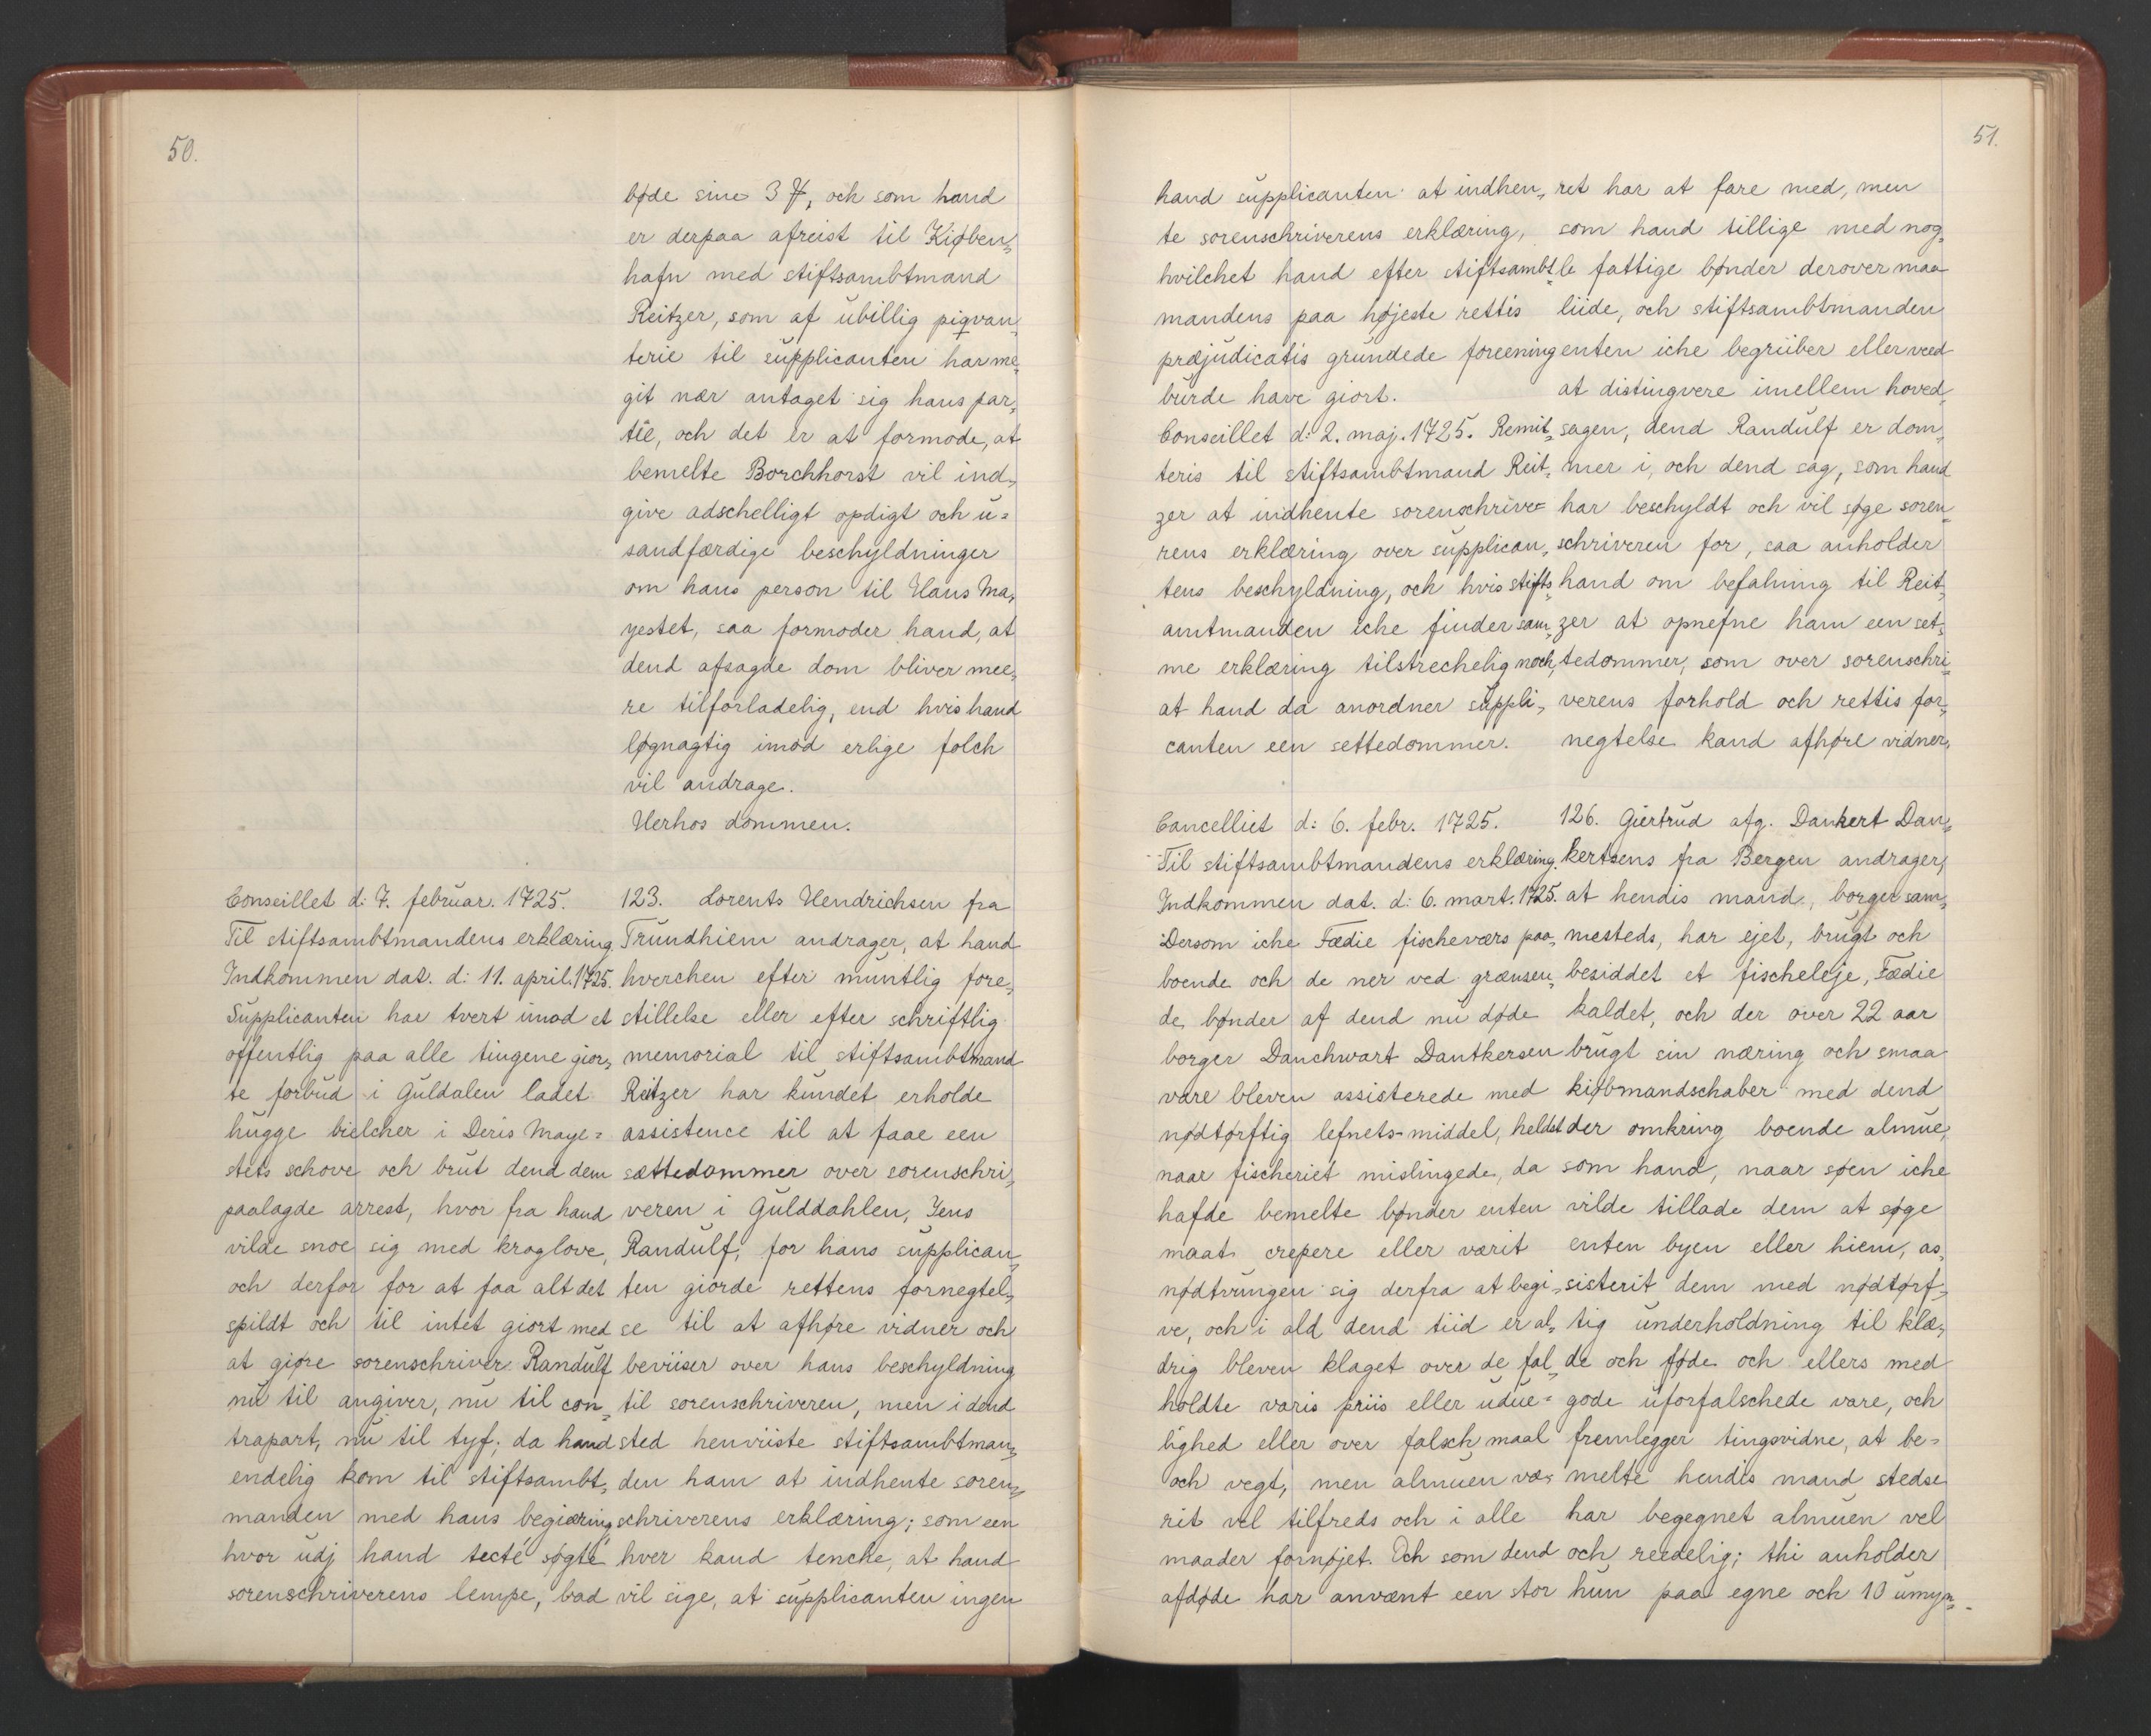 50.
bøde sine 3 ₰, och som hand
er derpaa afreist til Kiøben„
hafn med stiftsambtmand
Reitzer, som af ubillig piqvan„
terie til supplicanten har me„
git nær antaget sig hans par„
tie, och det er at formode, at
bemelte Borchhorst vil ind„
give adschelligt opdigt och u=
sandfærdige beschyldninger
om hans person til Hans Ma„
yestet, saa formoder hand, at
dend afsagde dom bliver mee„
re tilforladelig, end hvis hand
løgnagtig imod erlige folch
vil andrage.
Herhos dommen.
Conseillet d: 7. februar. 1725.
Til stiftsambtmandens erklæring.
Indkommen dat. d: 11. april. 1725.
Supplicanten har tvert imod et
offentlig paa alle tingene gior„
te forbud i Guldalen ladet
hugge bielcher i Deris Maye=
stets schove och brut dend dem
paalagde arrest, hvor fra hand
vilde snoe sig med kroglove,
och derfor for at faa alt det
spildt och til intet giort med
at giøre sorenschriver Randulf
nu til angiver, nu til con„
trapart, nu til tyf; da hand
endelig kom til stiftsambt„
manden med hans begiæring,
hvor udj hand tecté søgte
sorenschriverens lempe, bad
123. Lorents Hendrichsen fra
Trundhiem andrager, at hand
hverchen efter muntlig fore„
stillelse eller efter schriftlig
memorial til stiftsambtmand
Reitzer har kundet erholde
assistence til at faae een
sættedommer over sorenschri„
veren i Gulddahlen, Jens
Randulf, for hans supplican„
ten giorde rettens fornegtel„
se til at afhøre vidner och
beviiser over hans beschyldning
til sorenschriveren, men i dend
sted henviiste stiftsambtman„
den ham at indhente soren„
schriverens erklæring; som een
hver kand tencke, at hand
vil sige, at supplicanten ingen
51.
hand supplicanten at indhen„
te sorenschriverens erklæring,
hvilchet hand efter stiftsambt„
mandens paa højeste rettis
præjudicatis grundede foreening
burde have giort.
Conseillet d: 2. maj. 1725. Remit„
teris til stiftsambtmand Reit„
zer at indhente sorenschrive=
rens erklæring over supplican„
tens beschyldning, och hvis stifts„
amtmanden iche finder sam„
me erklæring tilstrechelig noch,
at hand da anordner suppli„
canten een settedommer.
ret har at fare med, men
som hand tillige med nog„
le fattige bønder derover maa
liide, och stiftsambtmanden
enten iche begriiber eller veed
at distingvere imellem hoved„
sagen, dend Randulf er dom„
mer i, och dend sag, som hand
har beschyldt och vil søge soren„
schriveren for, saa anholder
hand om befalning til Reit„
zer at opnefne ham een set„
tedommer, som over sorenschri„
verens forhold och rettis for„
negtelse kand afhøre vidner.
Cancelliet d: 6. febr. 1725.
Til stiftsambtmandens erklæring.
Indkommen dat. d: 6. mart. 1725.
Dersom iche Fædie fischeværs paa„
boende och de ner ved grænsen„
de bønder af dend nu døde
borger Danchwart Dantkersen
vare bleven assisterede med
nødtørftig lefnets-middel, heldst
naar fischeriet mislingede, da
hafde bemelte bønder enten
maat crepere eller værit
nødtvungen sig derfra at begi„
ve, och i ald dend tiid er al„
drig bleven klaget over de fal„
holdte varis priis eller udue=
lighed eller over falsch maal
och vegt, men almuen væ„
rit vel tilfreds och i alle
maader fornøjet. Och som dend
afdøde har anvænt een stor
126. Giertrud afg. Dankert Dan„
kertsens fra Bergen andrager,
at hendis mand, borger sam„
mesteds, har ejet, brugt och
besiddet et fischeleje, Fædie
kaldet, och der over 22 aar
brugt sin næring och smaa
kiøbmandschaber med dend
der omkring boende almue,
som hand, naar søen iche
vilde tillade dem at søge
enten byen eller hiem, as„
sisterit dem med nødtørf„
tig underholdning til klæ„
de och føde och ellers med
gode uforfalschede vare, och
fremlegger tingsvidne, at be=
melte hendis mand stedse
har begegnet almuen vel
och reedelig; thi anholder
hun paa egne och 10 umyn„